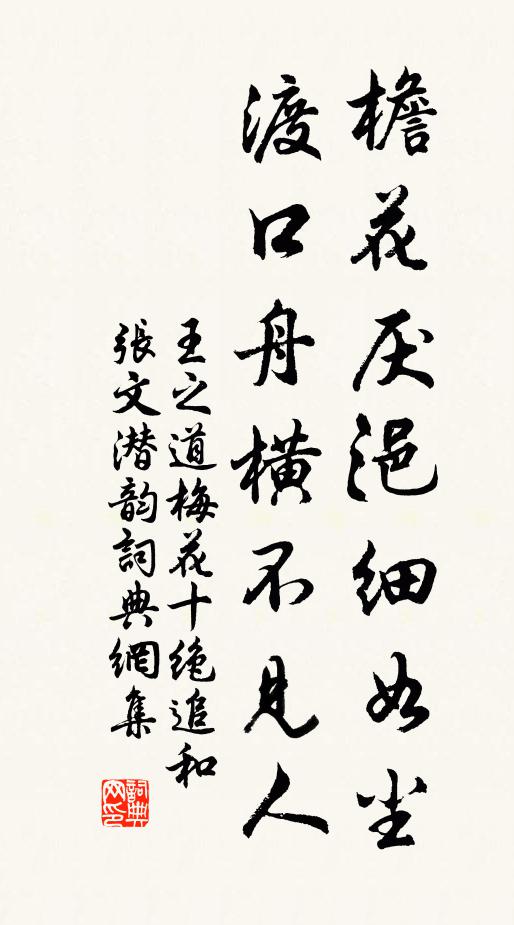 檐花厌浥細如尘
渡口舟横不見人
王之道梅花十絶追和
張文潜韵詞典網集
詞典
网印